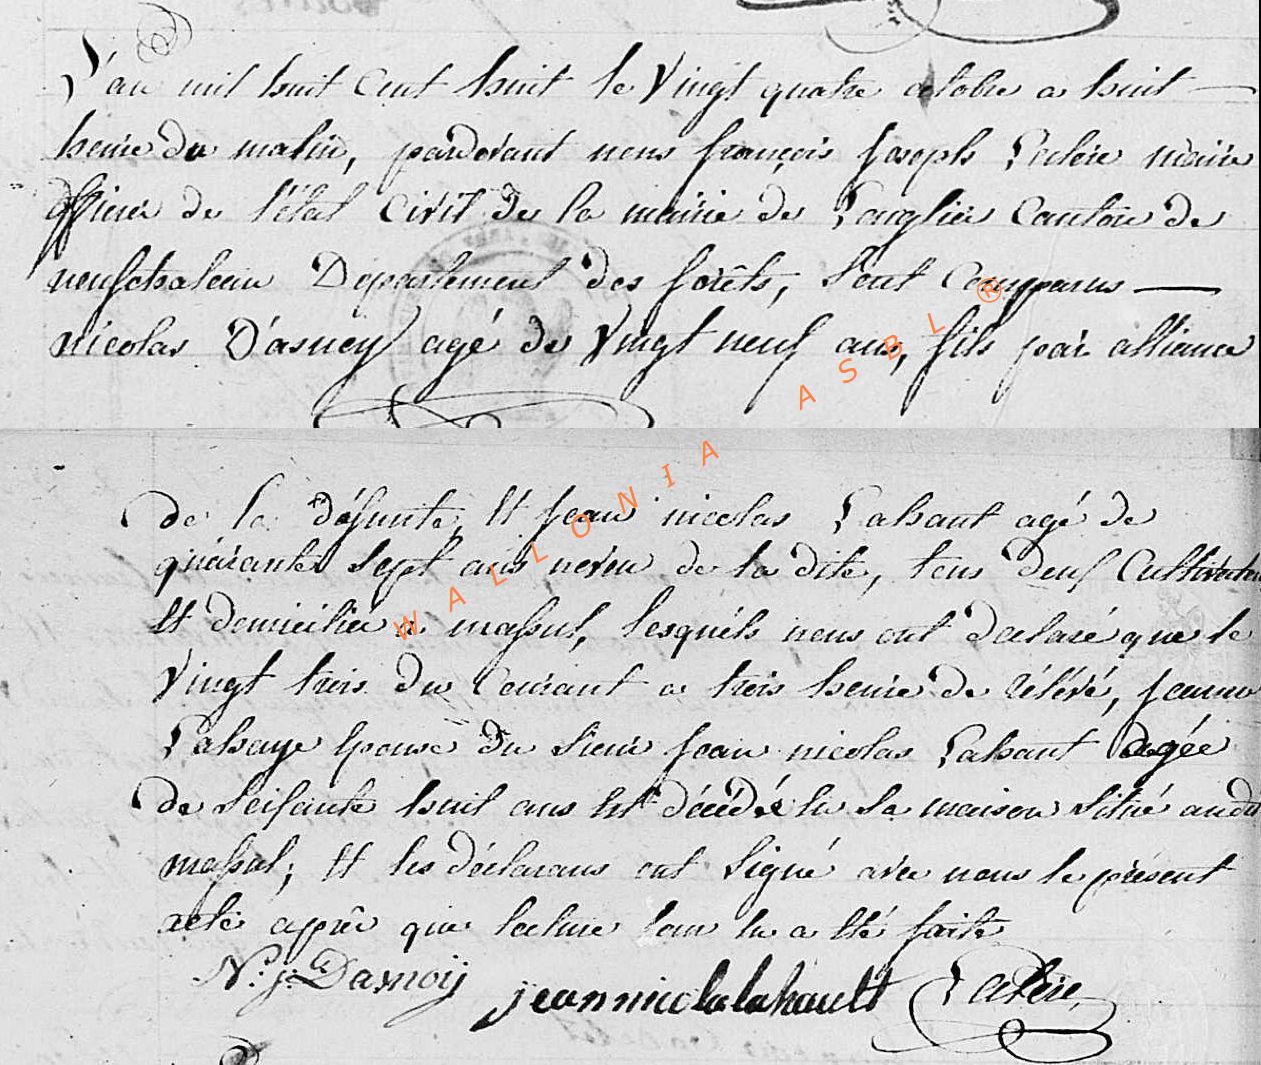 L'an mil huit Cent huit le Vingt quatre octobre a huit —
heure du matin, pardevant nous françois Joseph maire
officier de l'état Civil de la mairie de Longlier Canton de
neufchateau Departement des forêts, sont Comparus —
nicolas D'asnoy agé de Vingt neuf ans, fils par alliance
de la défunte, Et Jean nicolas Lahaut agé de
quarante sept ans neveu de la dite, tous deux Cultivateurs
Et domicilier a massul, lesquéls nous ont declaré que le
Vingt trois du Courant a trois heure de rélévé, Jeanne
Lahaye Epouse du sieur Jean nicolas Lahaut agée
de soisante huit ans Est décédée En sa maison située audit
massul; Et les déclarans ont signé avec nous le présent
acte apprês que lecture leur En a Eté faite
N. J. Dasnoij jean nicola lahault
WALLONIA ASBL ®